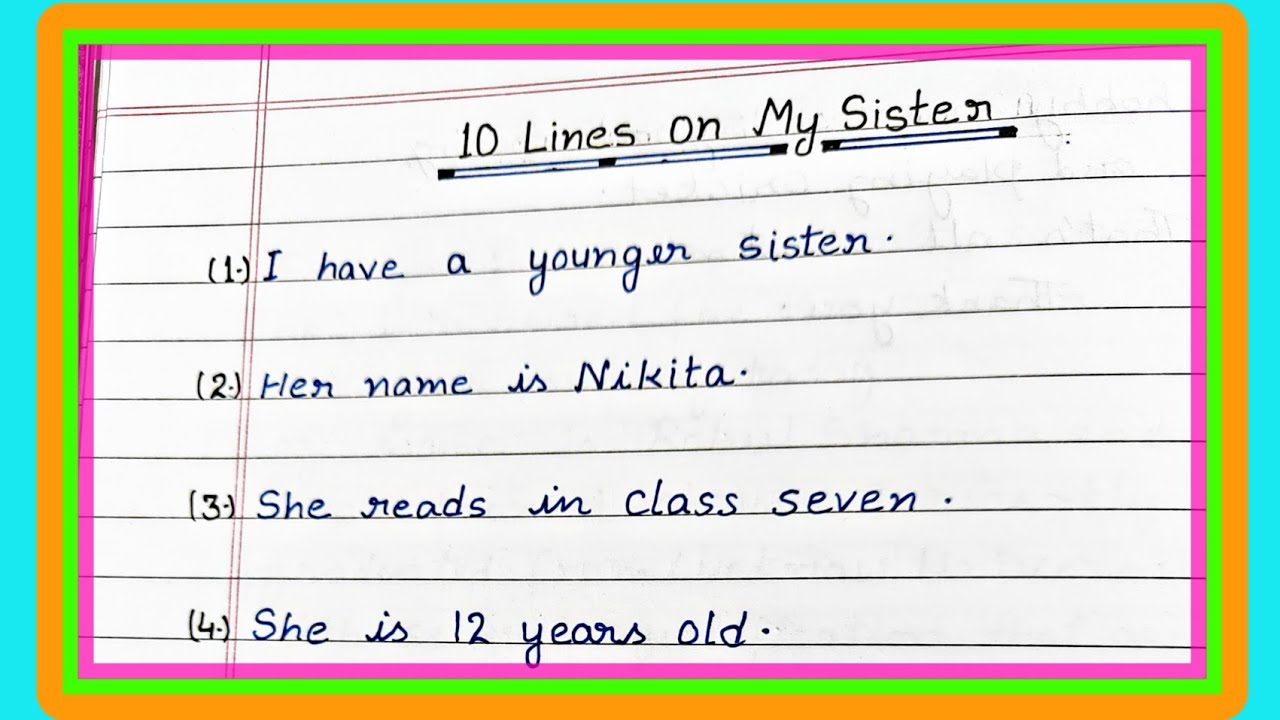 10 Lines on My Sister
(1.) I have a younger sister.
(2.) Her name is Nikita.
(3.) She reads in class seven.
(4.) She is 12 years old.